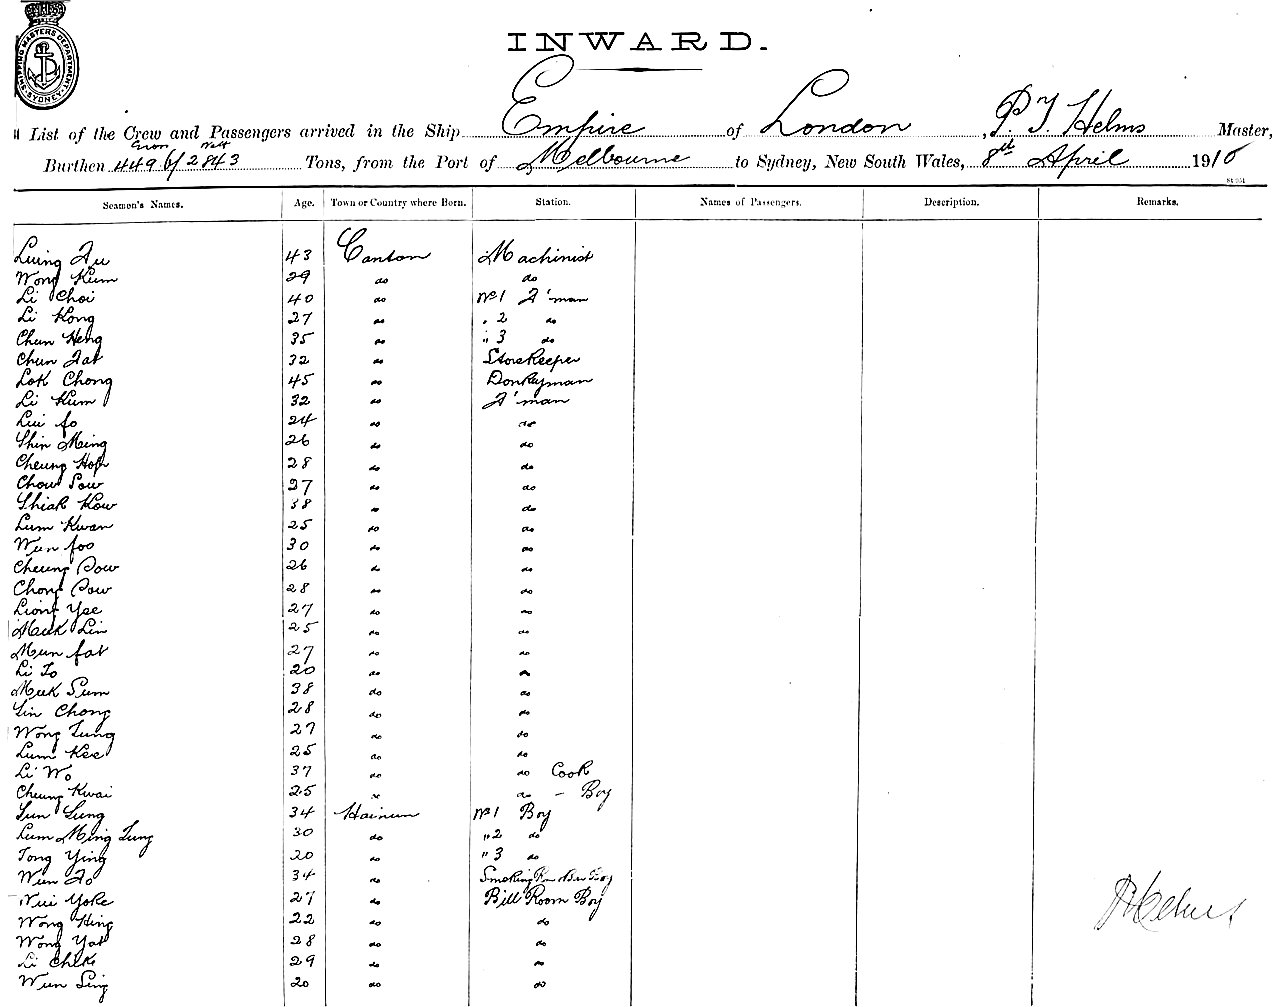 SHIPPING MASTERS DEPARTMENT
SYDNEY
INWARD.
List of the Crew and Passengers arrived in the Ship Empire of London, P. T. Helms Master,
Gross Nett
Burthen 4496/2843 Tons, from the Port of Melbourne to Sydney, New South Wales, 8th April 1910
Seamen's Names. Age. Town or Country where Born. Station. Names of Passengers. Description. Remarks.
43 Canton Machinist
Wong Kum 29 do do
Li Choi 40 do No 1 F'man
Li Kong 27 do " 2 do
Chun Heng 35 do " 3 do
Chun Fat 32 do Storekeeper
Lok Chong 45 do Donkeyman
Li Kum 32 do F'man
Lui fo 24 do do
Shin Ming 26 do do
Cheung Hop 28 do do
Chow Sow 27 do do
Shiak Kow 38 do do
Lum Kwan 25 do do
Wun foo 30 do do
Cheung Pow 26 do do
Chong Pow 28 do do
Liong Yee 27 do do
Muk Lin 25 do do
Mun fat 27 do do
Li To 20 do do
Muk Sum 38 do do
Lin Chong 28 do do
Wong Tung 27 do do
Lum Kee 25 do do
Li Wo 37 do do Cook
Cheung Kwai 25 do do - Boy
Sung 34 Hainun No 1 Boy
Lum Ming Tung 30 do " 2 do
Tong Ying 20 do " 3 do
Wun Fo 34 do Smoking Boy
Yoke 27 do Bill Room Boy
Wong Hing 22 do do
Wong Yat 28 do do
Li Chek 29 do do
Wun Sing 20 do do
Helms